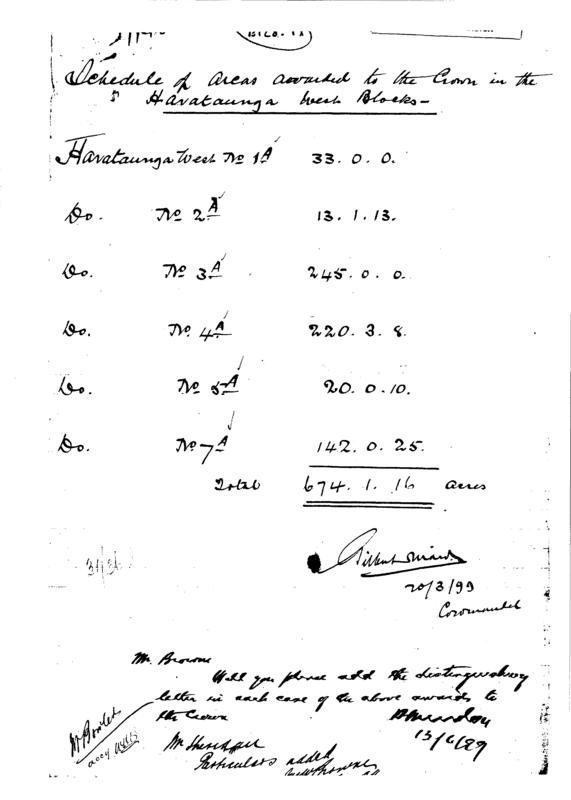 Schedule of Areas awarded to the Crown in the
Harataunga West Blocks-
Harataunga West No 1A 33. 0. 0.
Do. No 2A 13. 1. 13.
Do. No 3A 245. 0. 0.
Do. No 4A 220. 3. 8.
Do. No 5A 20. 0. 10.
Do. No 7A 142. 0. 25.
Total 674. 1. 16 acres
20/3/99
Coromandel
Mr. Browne
Will you please add the distinguishing
letter in each case of the above awards to
the Crown
Particulars added